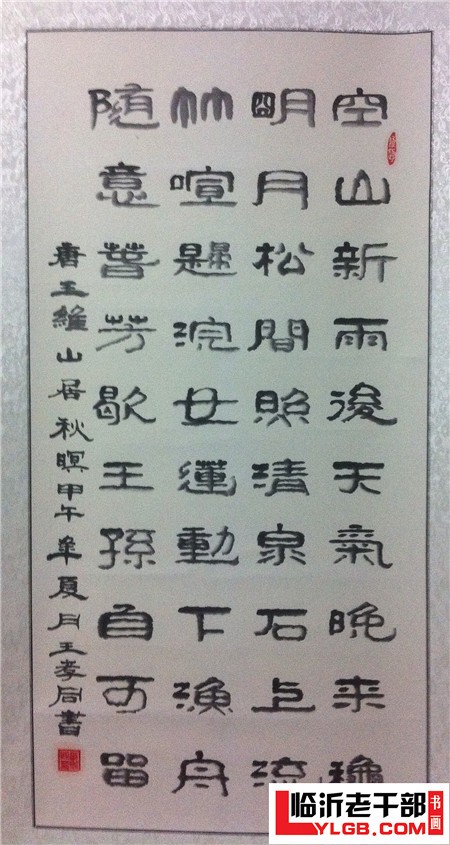 空山新雨後天氣晚来穐
朙月松間照清泉石上流
竹喧歸浣女蓮動下漁舟
隨意春芳歇王孫自可留
唐王維山居秋暝甲午年夏月王孝同書
临沂老干部书画
LYLGB.COM